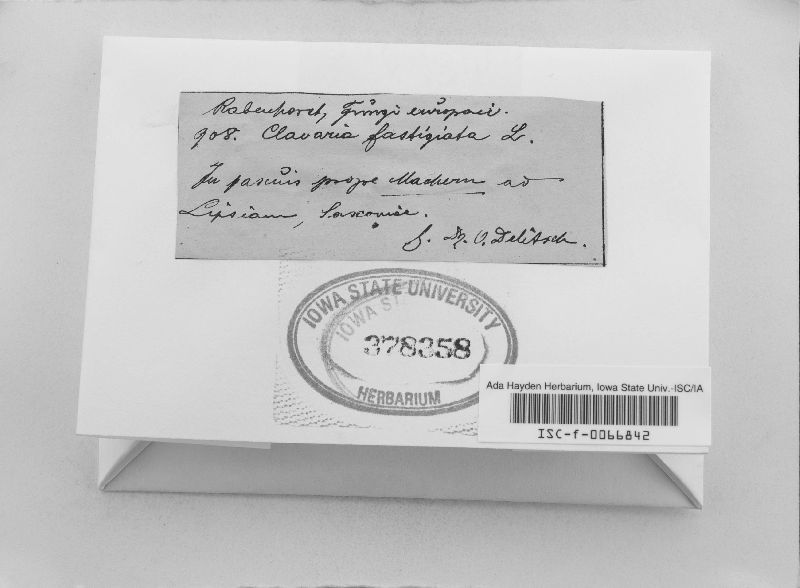 Rabenhorst, Fungi europaei.
908. Clavaria fastigiata L.
In pascuis prope Machern ad
Lipsiam, Saxoniae.
Dr. O. Delitsch.
IOWA STATE UNIVERSITY
IOWA ST
378358
HERBARIUM
Ada Hayden Herbarium, Iowa State Univ.-ISC/IA
ISC-f-0066842